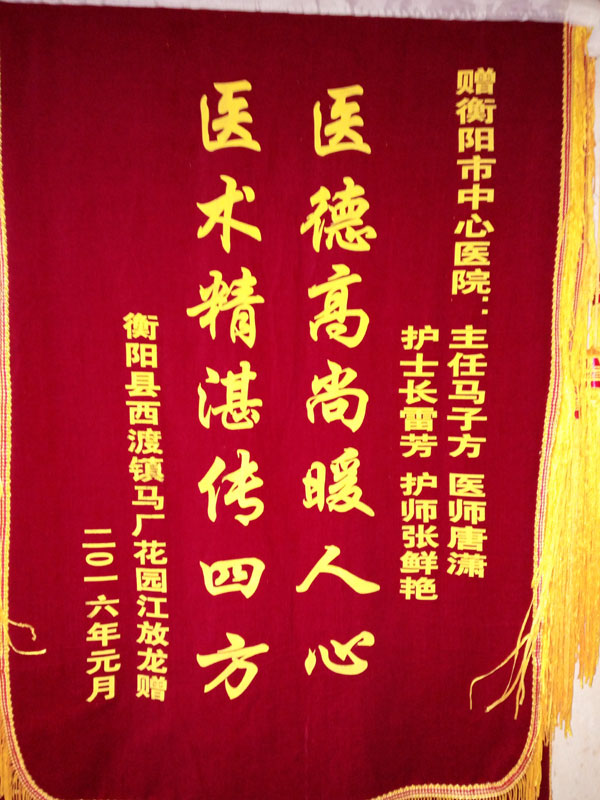 赠衡阳市中心医院：主任马子方 医师唐潇
护士长雷芳 护师张鲜艳
医德高尚暖人心
医术精湛传四方
衡阳县西渡镇马厂花园江放龙赠
二〇一六年元月